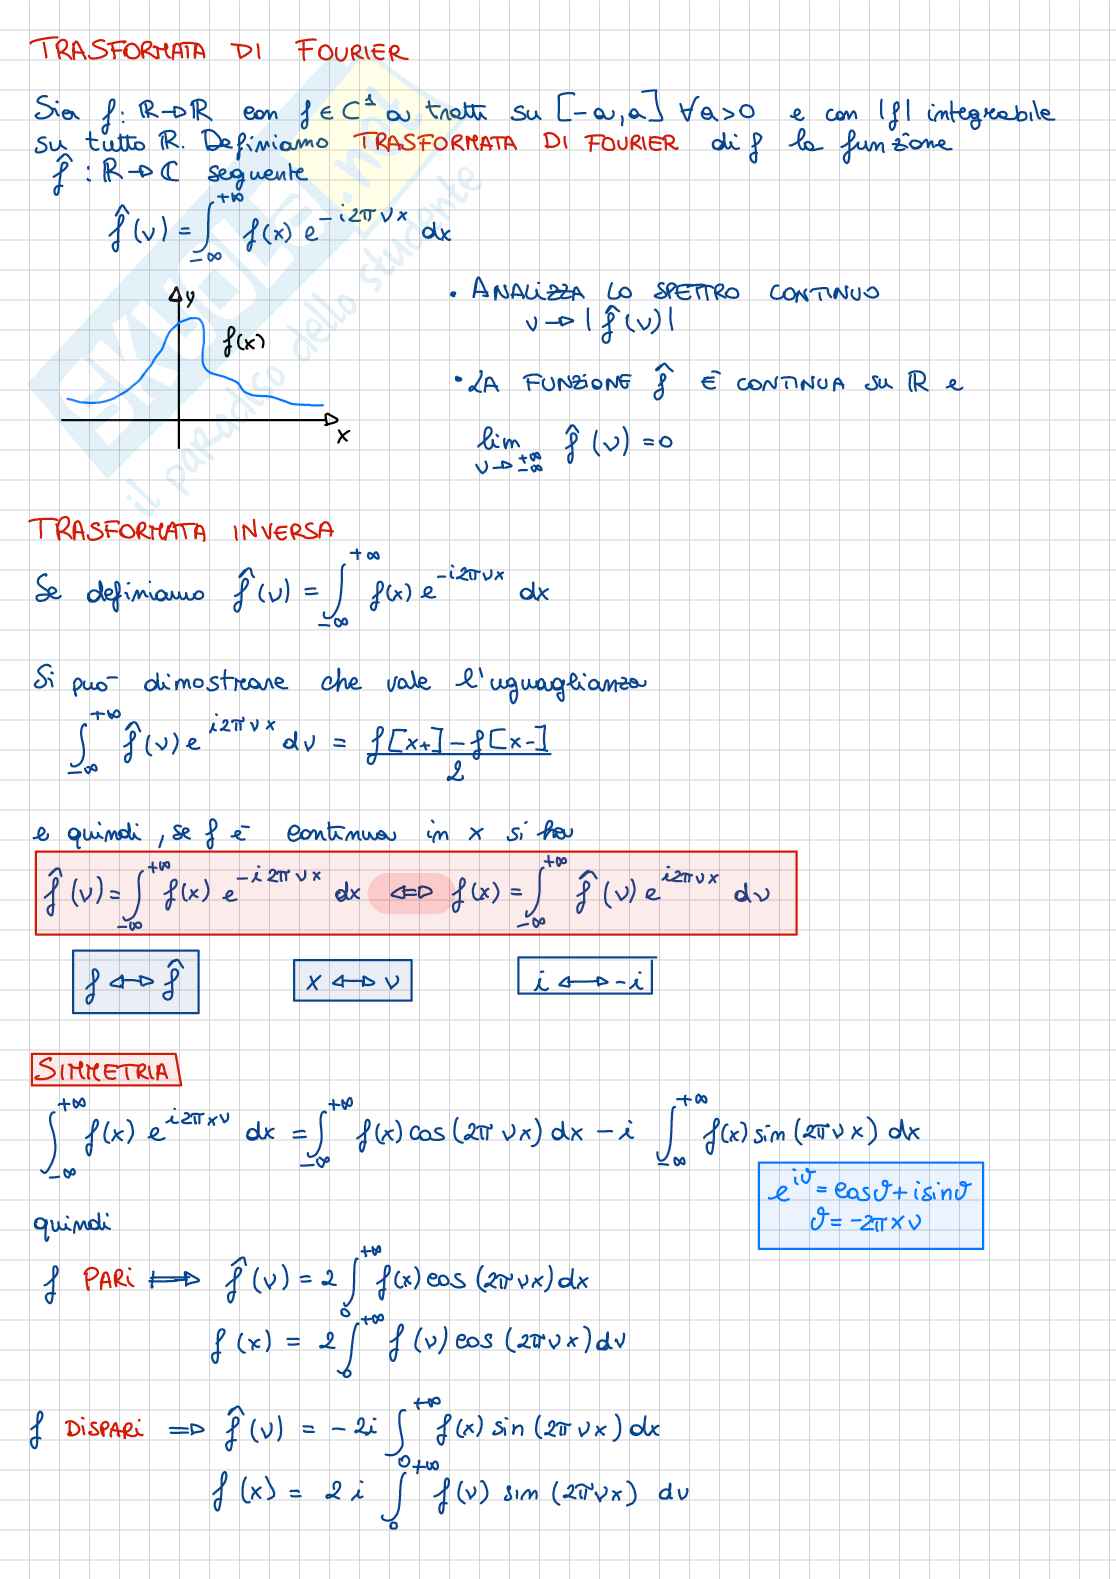 TRASFORMATA DI FOURIER
Sia f: ℝ→ℝ con f ∈ C¹ a tratti su [-a,a] ∀a>0 e con |f| integrabile
su tutto ℝ. Definiamo TRASFORMATA DI FOURIER di f la funzione
f̂ : ℝ→ℂ seguente
f̂(ν) = ∫_{-∞}^{+∞} f(x) e^{-i2πνx} dx
y
f(x)
x
• ANALIZZA LO SPETTRO CONTINUO
ν → |f̂(ν)|
• LA FUNZIONE f̂ È CONTINUA SU ℝ e
lim_{ν→±∞} f̂(ν) = 0
SKUOLA.net
il paradiso dello studente
TRASFORMATA INVERSA
Se definiamo f̂(ν) = ∫_{-∞}^{+∞} f(x) e^{-i2πνx} dx
Si può dimostrare che vale l'uguaglianza
∫_{-∞}^{+∞} f̂(ν) e^{i2πνx} dν = (f[x+] - f[x-])/2
e quindi, se f è continua in x si ha
f̂(ν) = ∫_{-∞}^{+∞} f(x) e^{-i2πνx} dx ⇔ f(x) = ∫_{-∞}^{+∞} f̂(ν) e^{i2πνx} dν
f ⇔ f̂ x ⇔ ν i ⇔ -i
SIMMETRIA
∫_{-∞}^{+∞} f(x) e^{i2πxν} dx = ∫_{-∞}^{+∞} f(x) cos(2πνx) dx - i ∫_{-∞}^{+∞} f(x) sin(2πνx) dx
e^{iϑ} = cosϑ + isinϑ
ϑ = -2πxν
quindi
f PARI ⟹ f̂(ν) = 2 ∫_0^{+∞} f(x) cos(2πνx) dx
f(x) = 2 ∫_0^{+∞} f(ν) cos(2πνx) dν
f DISPARI ⟹ f̂(ν) = -2i ∫_0^{+∞} f(x) sin(2πνx) dx
f(x) = 2i ∫_0^{+∞} f(ν) sin(2πνx) dν